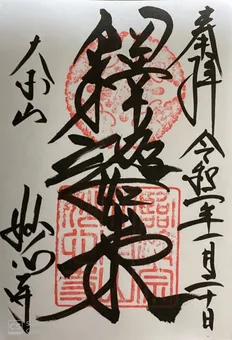 奉拝 令和二年一月二十日
釋迦如来
大本山 妙心寺